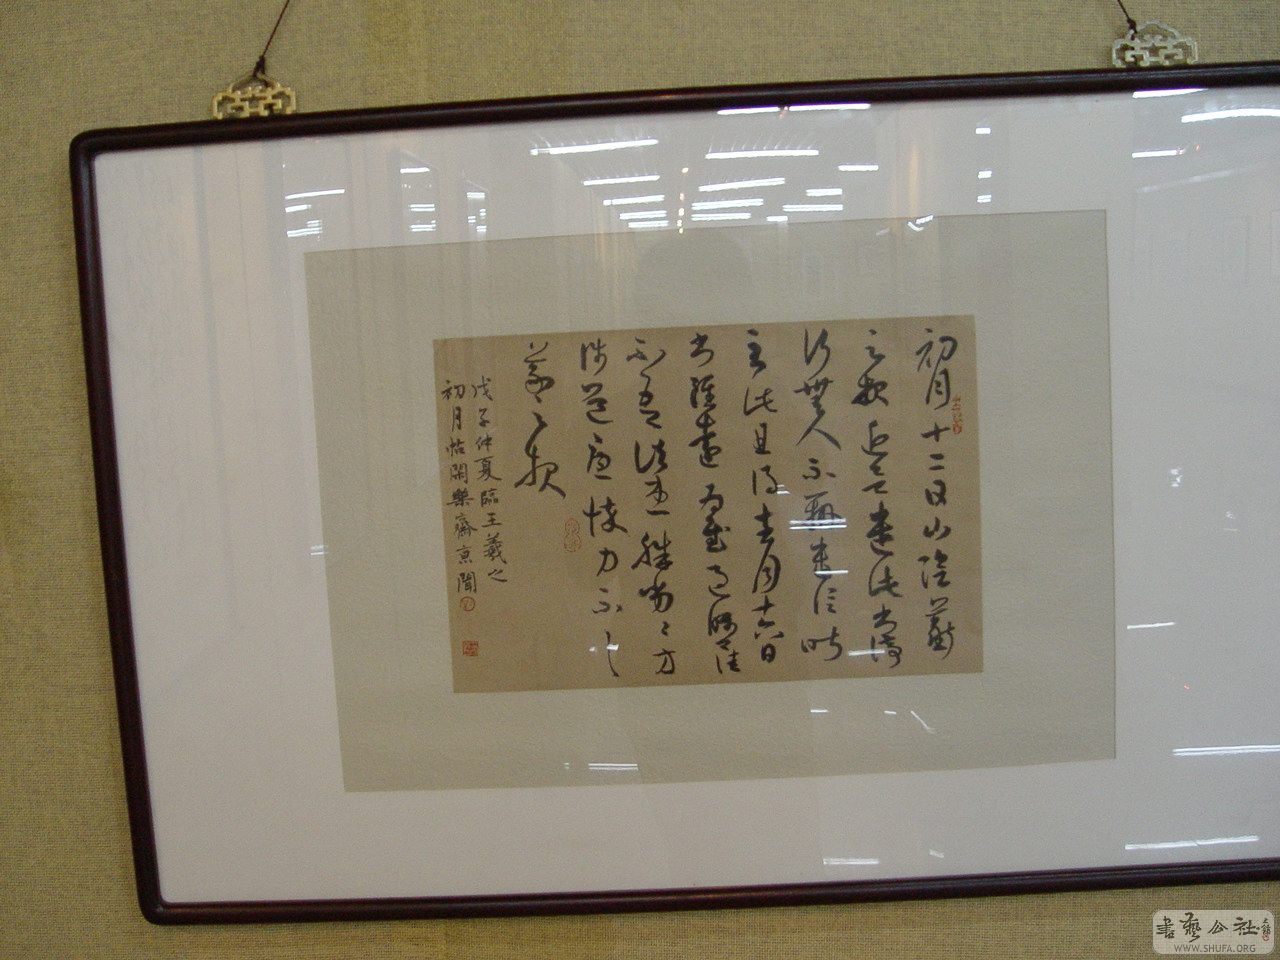 初月十二日山陰羲
之報近欲遣此書停
行無人不辦遣信昨
至此且得去月十六日
書雖遠為慰過囑卿佳
不吾諸患殊劣劣方
涉道憂悴力不具
羲之報
戊子仲夏臨王羲之
初月帖閑樂齋京聞
書藝公社
WWW.SHUFA.ORG